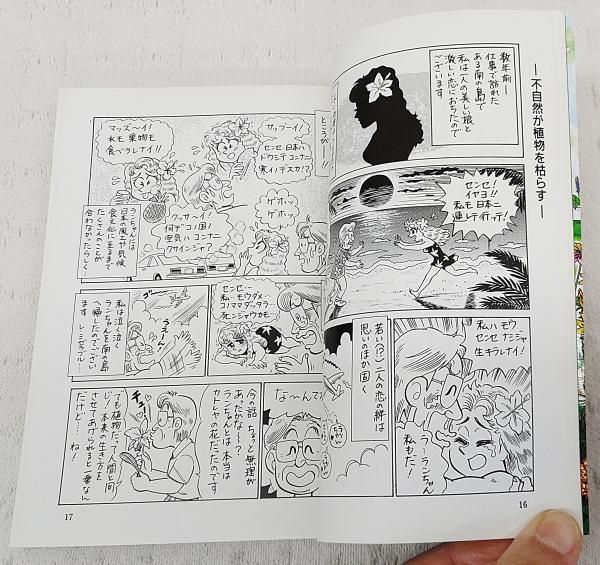 ―不自然が植物を枯らす―
数年前―
仕事で訪れた
ある南の島で
私は一人の美しい娘と
激しい恋におちたので
ございます
センセ!
イヤヨ!!
私モ日本ニ
連レテ行ッテ!
私ハモウ
センセナジジャ
生キラレナイ!
う…ランちゃん
私もだ!
若い(!?)二人の恋の絆は
思いのほか固く
16
ところが…
サッブーイ!
センセ日本ハ
ドウシテコンナニ
寒イノデスカ!?
マッズ〜イ!
水モ果物モ
食ベラレナイ!!
ゲホッ
ゲホッ
クッサ〜イ!
何デコノ国ノ
空気ハコンナニ
クサインジャ?
ランちゃんには
日本の風土や気候
食文化に至るまで
たくさんのことが
合わなかったらしく…
センセ…
私…モウダメ…
コノママダッタラ
死ンジャウカモ…
うえ〜ん!
私は泣く泣く
ランちゃんを南の島
へ帰したのでござい
ます
な〜んて
今の話ちょっと無理が
あったかな〜?
ランちゃんとは本当は
カトレヤの花だったのです
でも植物だって人間と同
じ!本来の生き方を
させてあげられると一番なん
だけど…ね!
17